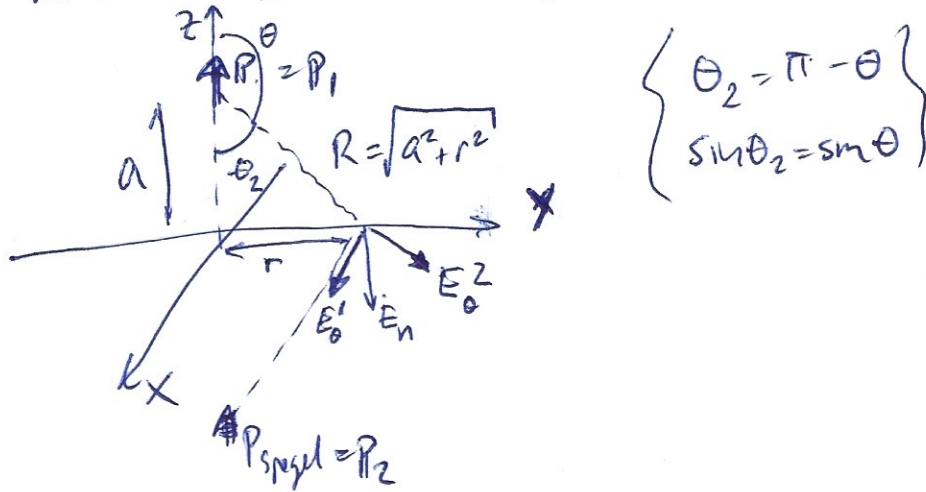 z θ
ℙ = ℙ₁
a θ₂ R = √(a² + r²)
r
E_θ¹ E_n E_θ²
x
P_spegel = ℙ₂
{ θ₂ = π - θ
sinθ₂ = sinθ }